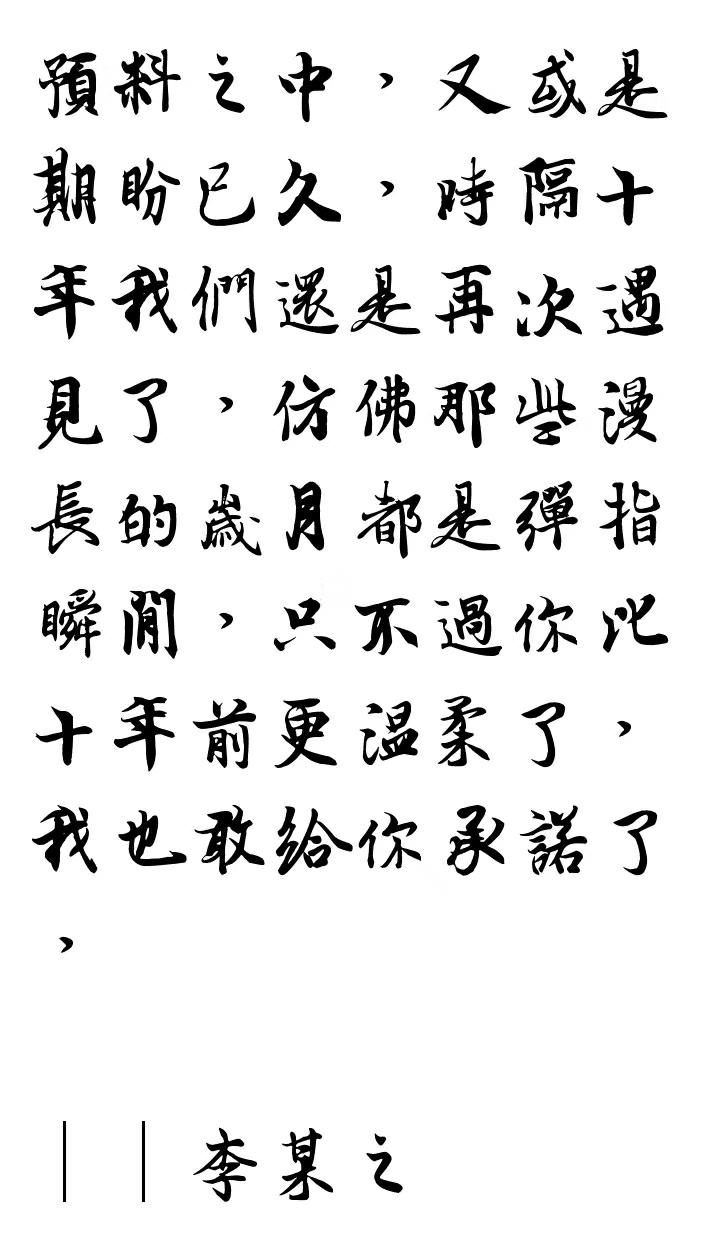 預料之中，又或是
期盼已久，時隔十
年我們還是再次遇
見了，仿佛那些漫
長的歲月都是彈指
瞬間，只不過你比
十年前更溫柔了，
我也敢給你承諾了
，
｜｜李某之